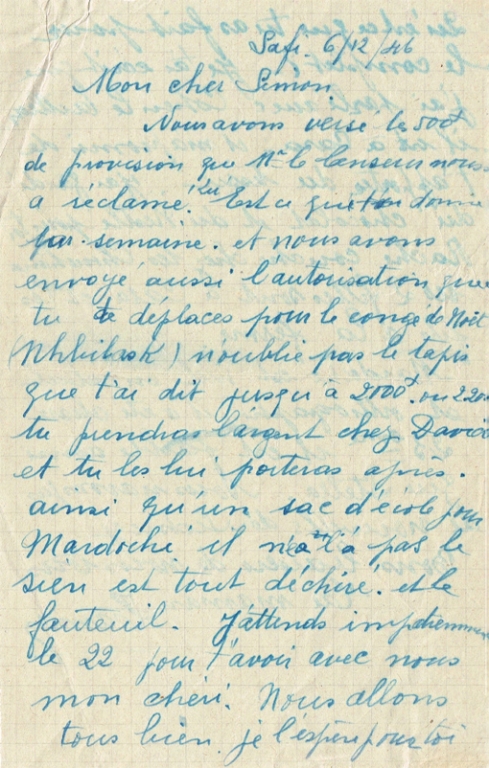 Safi. 6/12/46
Mon cher Simon
Nous avons versé les 500f
de provision que Mr le Censeur nous
a réclamé. Est ce que ton donne
par semaine. et nous avons
envoyé aussi l'autorisation que
tu te déplaces pour le congé de Noël
n'oublie pas le tapis
que t'ai dit jusqu'à 2000f. ou 2200
tu prendras l'argent chez David
et tu les lui porteras après.
ainsi qu'un sac d'école pour
Mardoché il n'a pas le
sien est tout déchiré. et le
fauteuil. J'attends impatiemment
le 22 pour t'avoir avec nous
mon chéri. Nous allons
tous bien. je l'espère pour toi